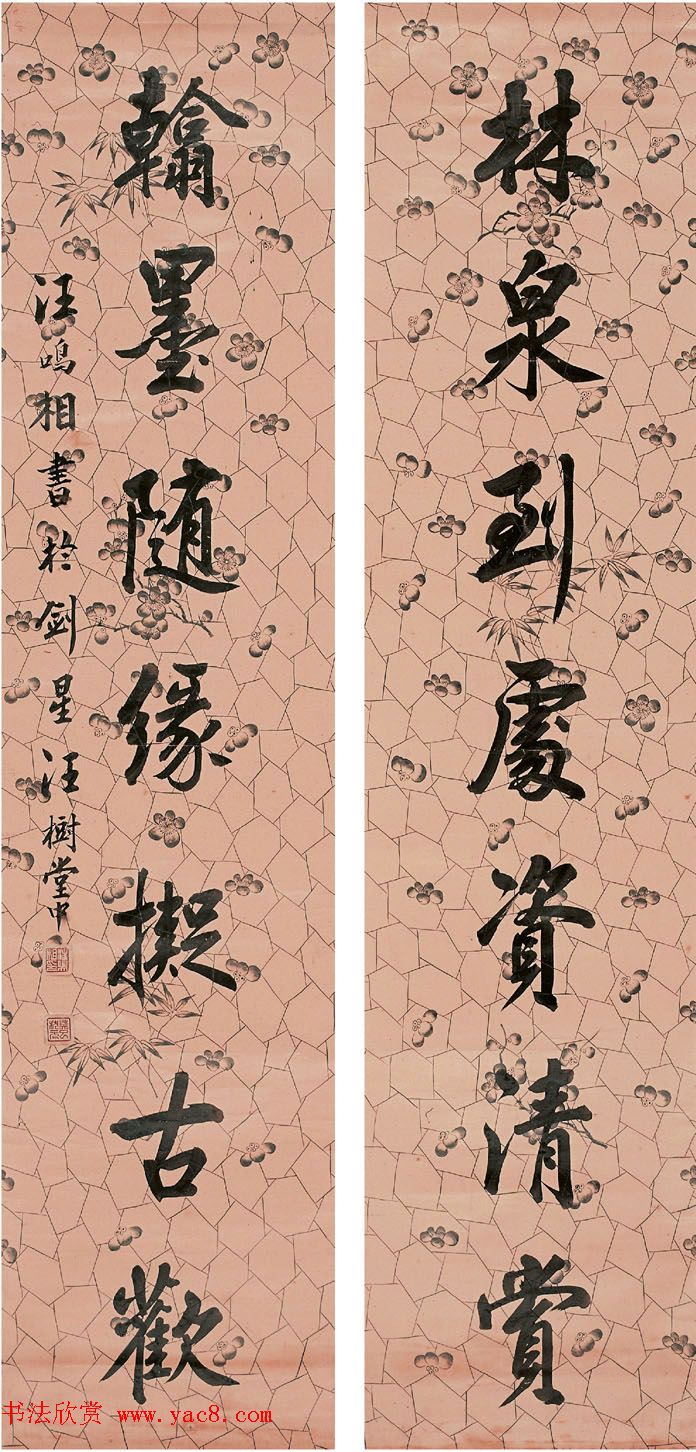 林泉到處資清賞
翰墨随緣擬古歡
汪鳴相書於剑星汪樹堂中
书法欣赏 www.yac8.com